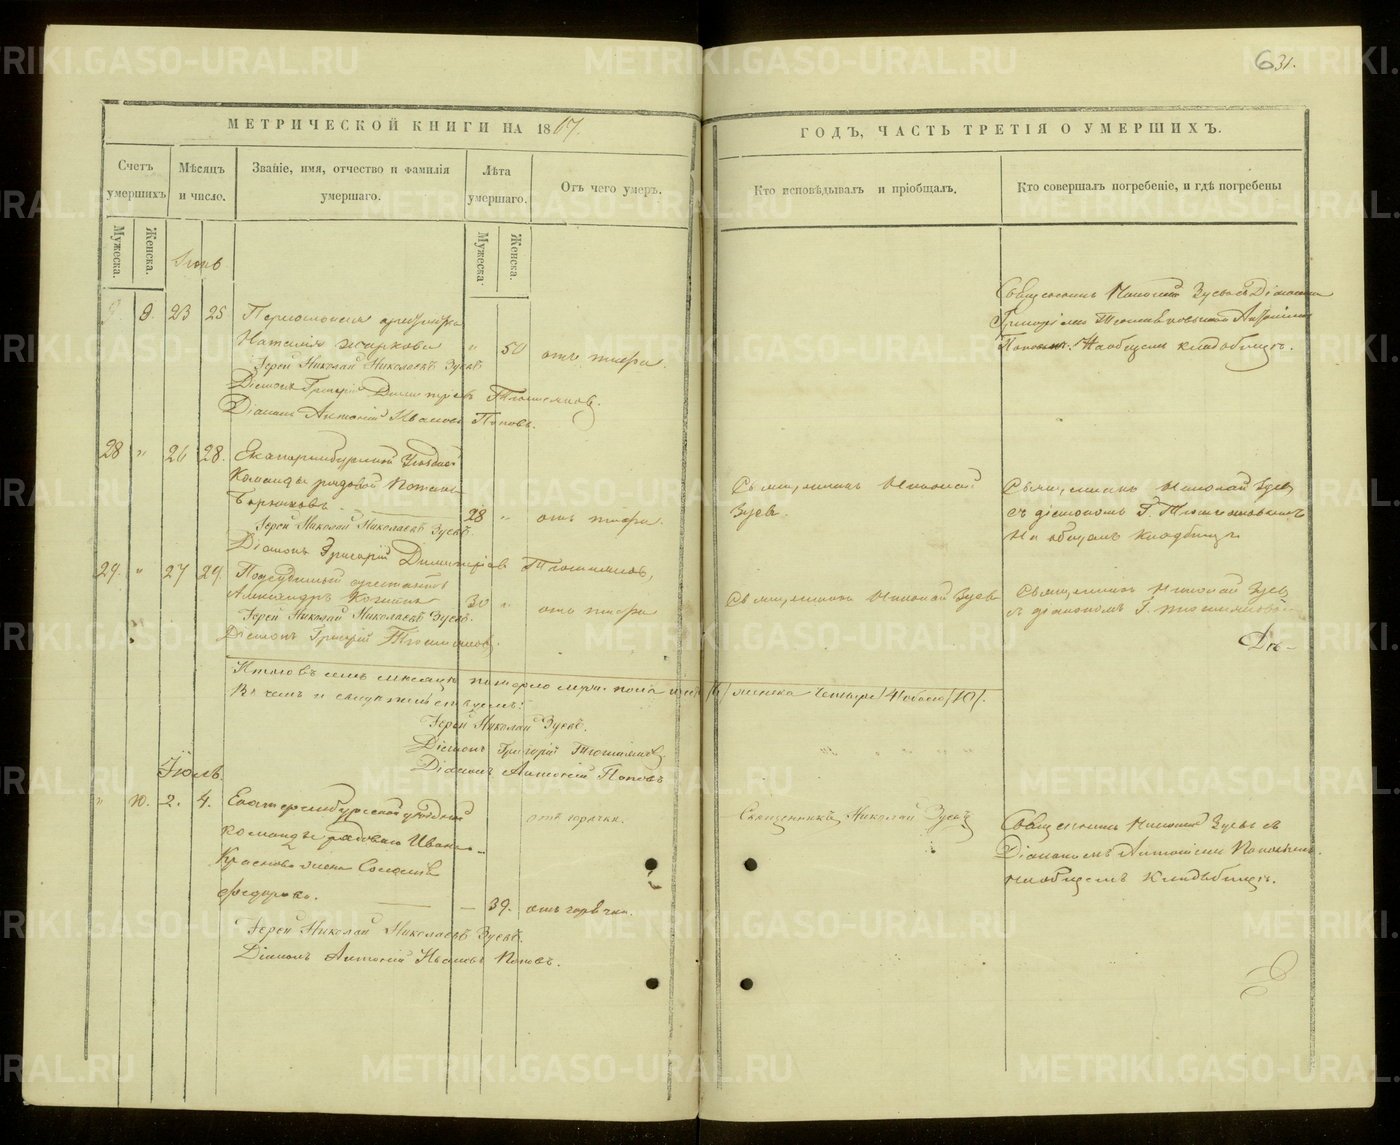 631.
МЕТРИЧЕСКОЙ КНИГИ НА 1867.
ГОДЪ, ЧАСТЬ ТРЕТІЯ О УМЕРШИХЪ.
Счетъ умершихъ
Мѣсяцъ и число.
Званіе, имя, отчество и фамилія умершаго.
Лѣта умершаго.
Отъ чего умеръ.
Кто исповѣдывалъ и пріобщалъ.
Кто совершалъ погребеніе, и гдѣ погребены
Мужеска.
Женска.
Мужеска
Женска.
Іюнь
9. 23 25
Наталія Жаркова " 50 отъ тифа.
Іерей Николай Николаевъ Зуевъ
Діаконъ Григорій Димитріевъ
Діаконъ Антоній Ивановъ Поповъ.
Священникъ Николай Зуевъ съ Діакономъ
На общемъ кладбищѣ.
28 " 26 28. Екатеринбургской Уѣздной
Команды рядовой
28 " отъ тифа.
Іерей Николай Николаевъ Зуевъ.
Діаконъ Григорій Димитріевъ
Священникъ Николай
Зуевъ.
Священникъ Николай Зуевъ
съ діакономъ Г.
На общемъ кладбищѣ
29. " 27 29. Подсудимый арестантъ
Александръ 30 " отъ тифа
Іерей Николай Николаевъ Зуевъ.
Діаконъ Григорій
Священникъ Николай Зуевъ
Священникъ Николай Зуевъ
съ діакономъ Г.
Итого въ семъ мѣсяцѣ померло муж. пола шесть /6/ женска четыре /4/ обоего /10/.
Въ чемъ и свидѣтельствуемъ:
Іерей Николай Зуевъ.
Діаконъ Григорій
Діаконъ Антоній Поповъ
Іюль
" 10. 2. 4. Екатеринбургской уѣздной
команды рядоваго Ивана
Краснова жена
Федорова. — — 39. отъ горячки.
отъ горячки.
Іерей Николай Николаевъ Зуевъ.
Діаконъ Антоній Ивановъ Поповъ.
Священникъ Николай Зуевъ
Священникъ Николай Зуевъ съ
Діакономъ Антоніемъ Поповымъ.
на общемъ кладбищѣ.
METRIKI.GASO-URAL.RU